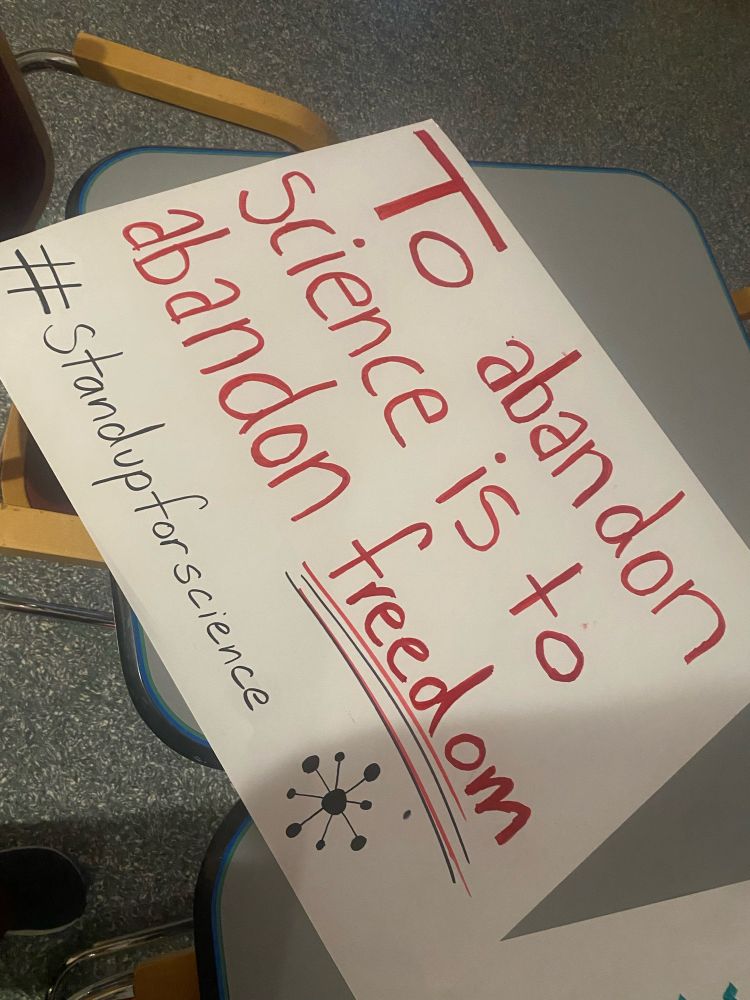 To abandon
science is to
abandon freedom
#standupforscience